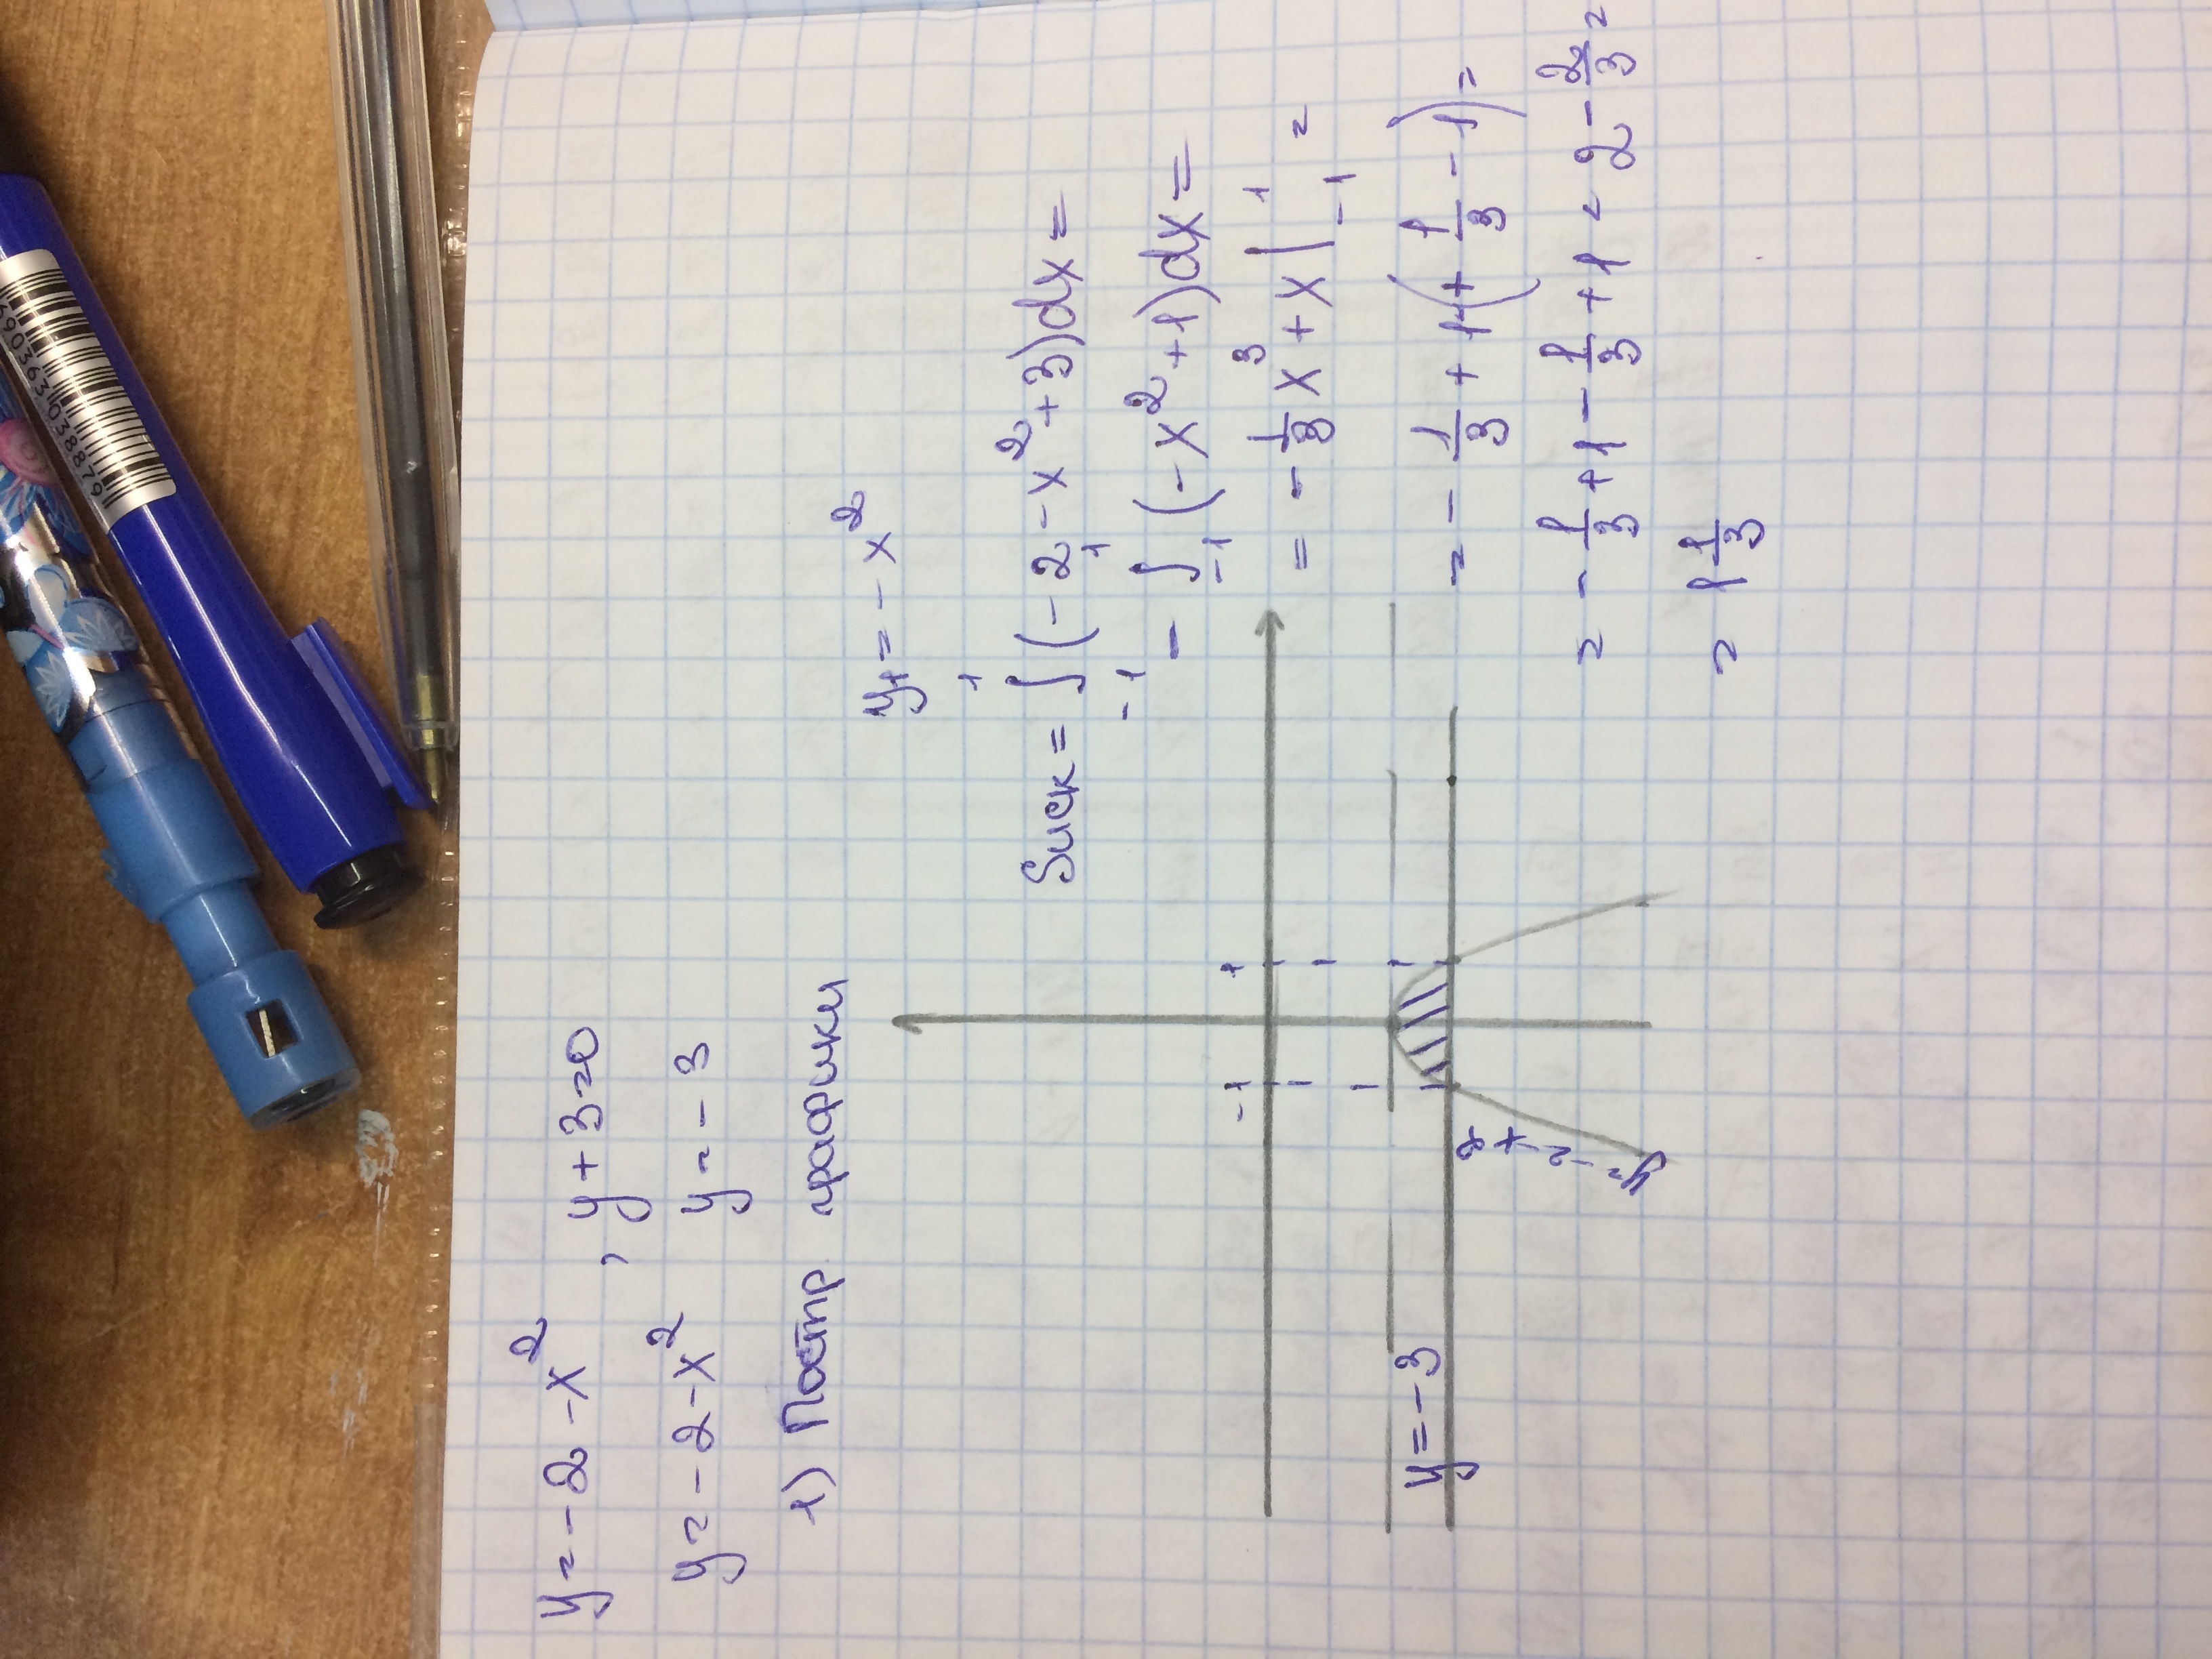 y = -2 - x², y + 3 = 0
y = -2 - x² y = -3
1) Постр графики
y₁ = -x²
Sиск = ∫₋₁¹ (-2 - x² + 3)dx =
= ∫₋₁¹ (-x² + 1)dx =
= -1/3 x³ + x |₋₁¹ =
= -1/3 + 1 - (+1/3 - 1) =
= -1/3 + 1 - 1/3 + 1 = 2 - 2/3 =
= 1 1/3
-1 1
y = -3
690363103887 9